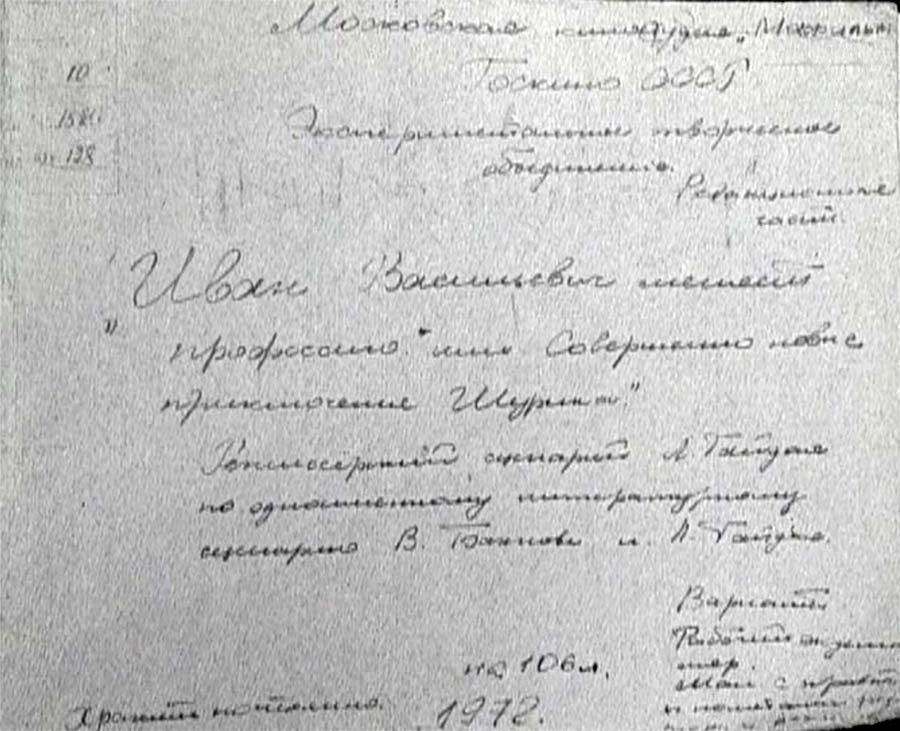 Московская киностудия „Мосфильм
Госкино СССР
10
158
128
Экспериментальное творческое
объединение.
Режиссерский
„Иван Васильевич меняет
профессию." или Совершенно новые
приключение Шурика."
Режиссерский сценарий Л. Гайдая
по одноименному литературному
сценарию В. Бахнова и Л. Гайдая.
Варианты
Рабочий экзем
пляр.
с правк
и пометками
на 106 л.
Хранить постоянно.
1972.